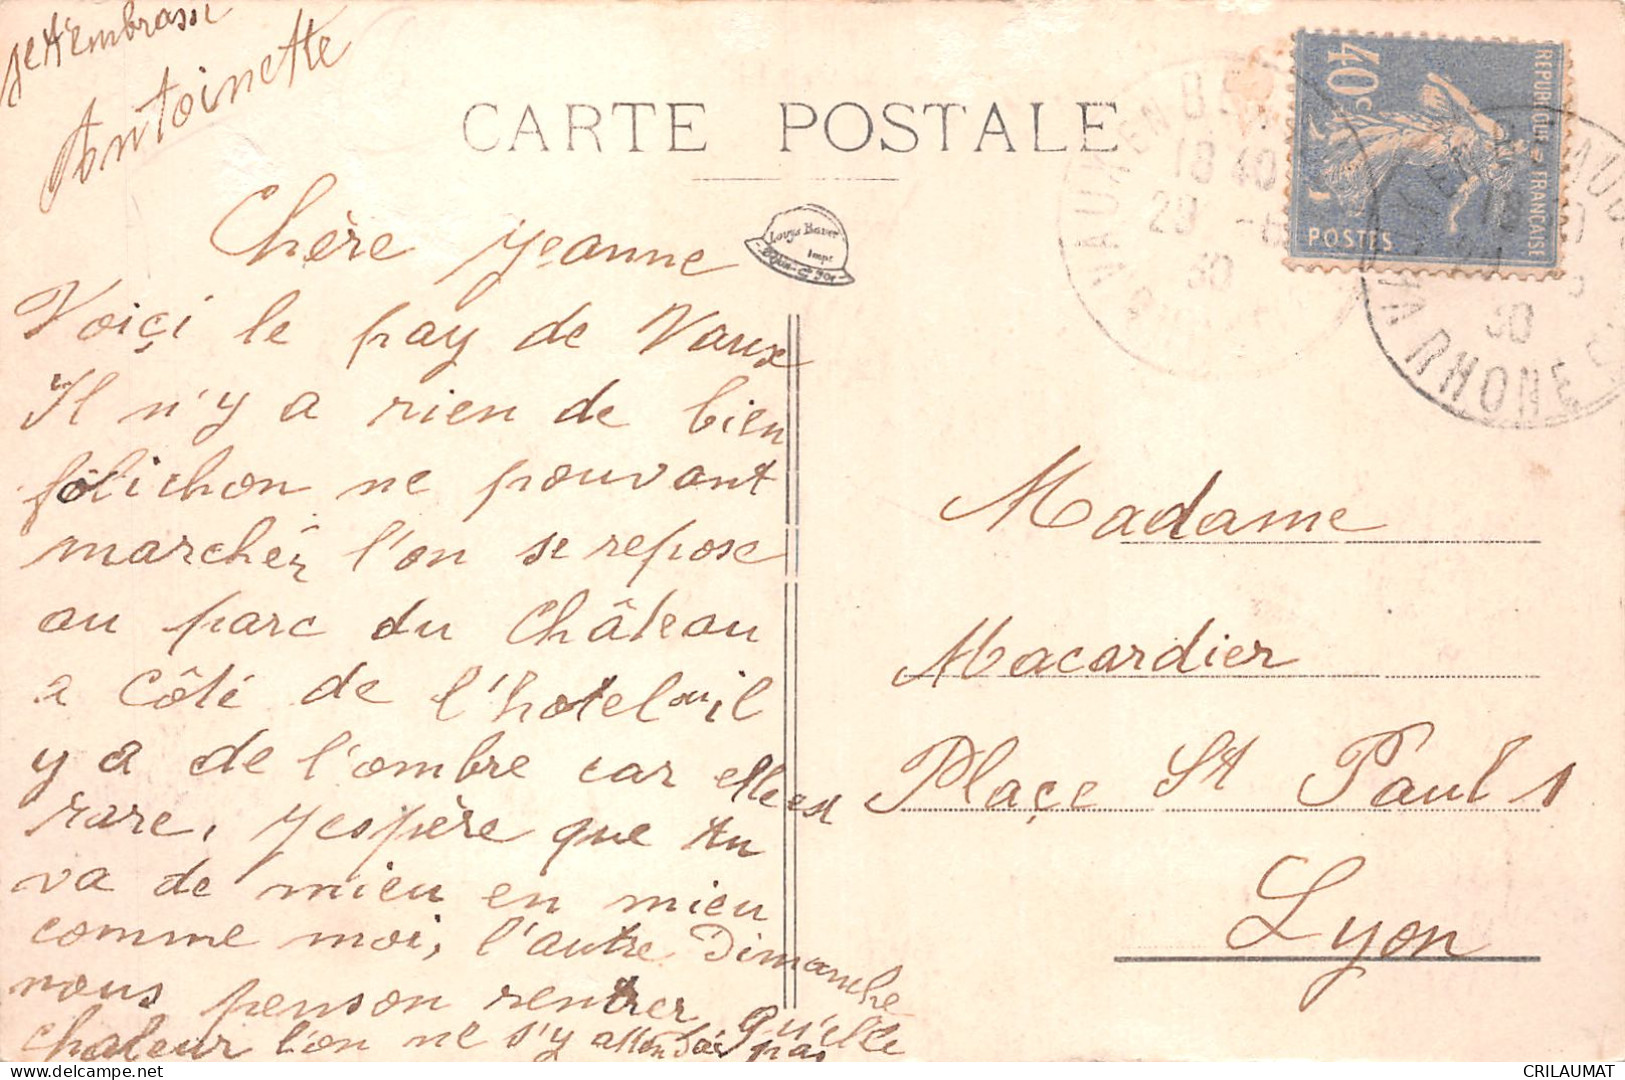 je t'embrasse
Antoinette
CARTE POSTALE
Louys Bauer
Impr
Dijon-Cte d'Or
40c
REPUBLIQUE FRANCAISE
POSTES
VAUX EN
18 40
29 -6
30
RHONE
30
Chère Jeanne
Voiçi le pay de Vaux
Il n'y a rien de bien
folichon ne pouvant
marcher l'on se repose
au parc du Château
a Côté de l'hotel ou il
y a de l'ombre car elle est
rare, J'espère que tu
va de mieu en mieu
comme moi, l'autre Dimanche
nous penson rentrer Qu'elle
chaleur l'on ne s'y attendai pas
Madame
Macardier
Plaçe St Paul 1
Lyon
CRILAUMAT